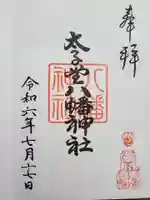 奉拝
太子堂八幡神社
令和六年七月十七日